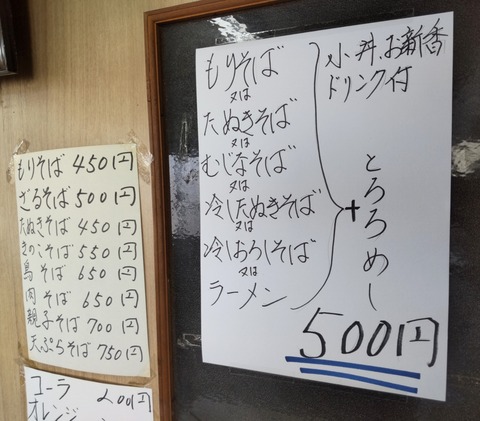 もりそば 450円
ざるそば 500円
たぬきそば 450円
きのこそば 550円
鳥そば 650円
肉そば 650円
親子そば 700円
天ぷらそば 750円
コーラ 200円
オレンジ
もりそば
又は
たぬきそば
又は
むじなそば
又は
冷したぬきそば
又は
冷しおろしそば
又は
ラーメン
小丼、お新香
ドリンク付
+
とろろめし
500円